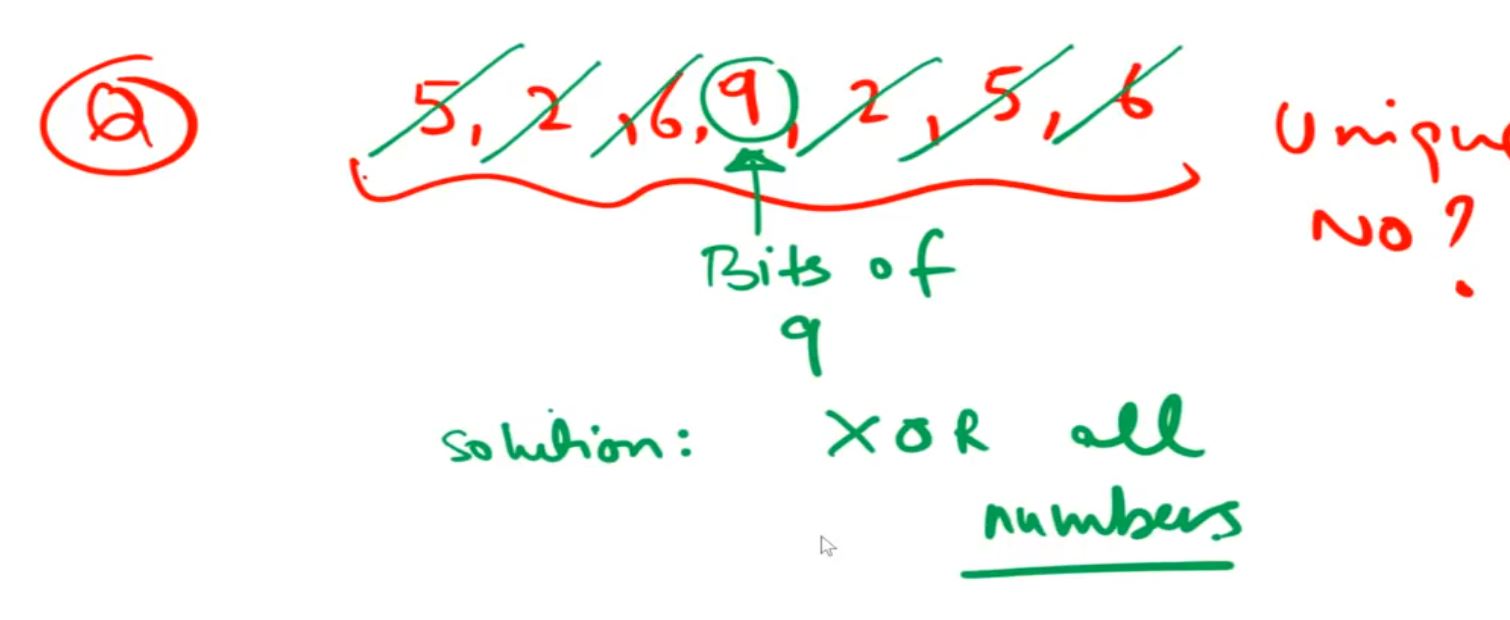 Q 5, 2, 6, 9, 2, 5, 6
NO?
Bits of
9
Solution: XOR all
numbers